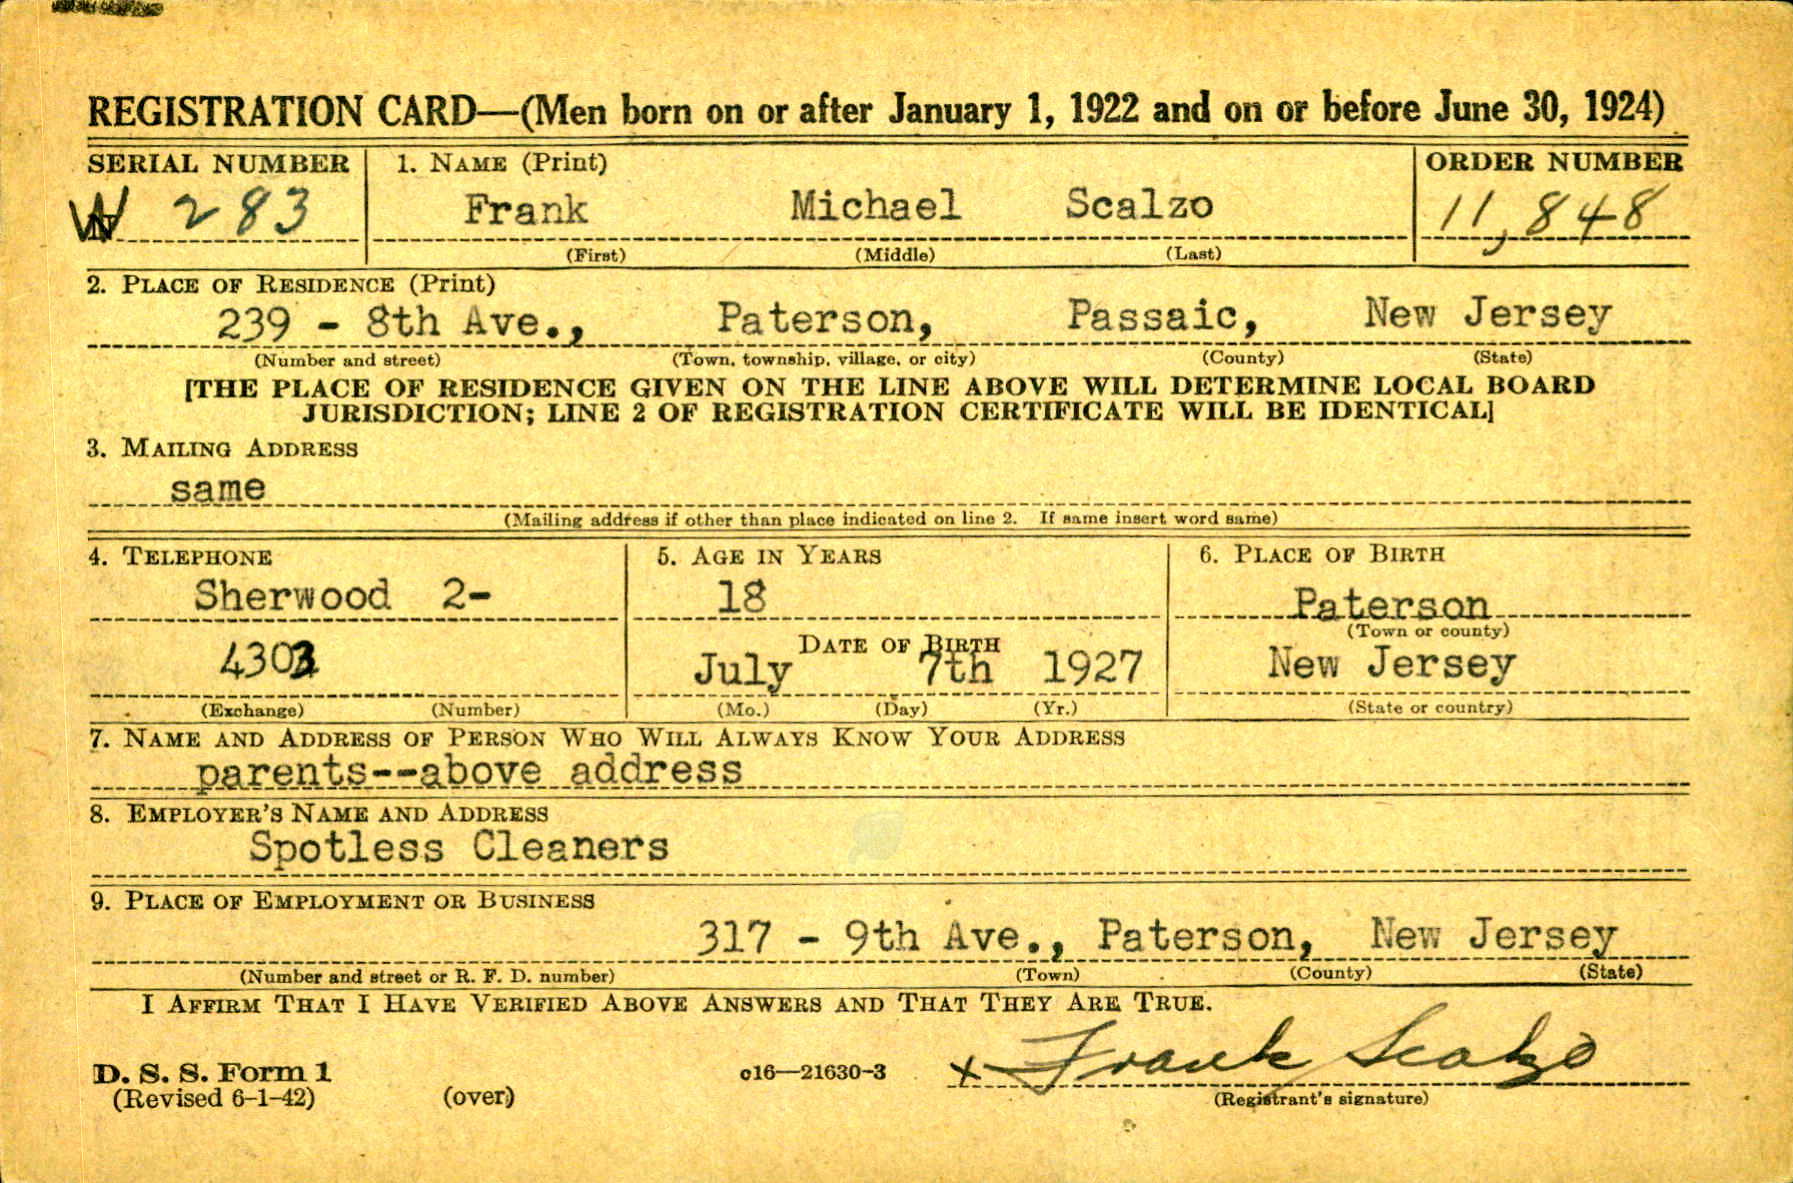 REGISTRATION CARD—(Men born on or after January 1, 1922 and on or before June 30, 1924)
SERIAL NUMBER 1. NAME (Print) ORDER NUMBER
W 283 Frank Michael Scalzo 11,848
(First) (Middle) (Last)
2. PLACE OF RESIDENCE (Print)
239 - 8th Ave., Paterson, Passaic, New Jersey
(Number and street) (Town, township, village, or city) (County) (State)
[THE PLACE OF RESIDENCE GIVEN ON THE LINE ABOVE WILL DETERMINE LOCAL BOARD
JURISDICTION; LINE 2 OF REGISTRATION CERTIFICATE WILL BE IDENTICAL]
3. MAILING ADDRESS
same
(Mailing address if other than place indicated on line 2. If same insert word same)
4. TELEPHONE 5. AGE IN YEARS 6. PLACE OF BIRTH
Sherwood 2- 18 Paterson
(Town or county)
DATE OF BIRTH
4303 July 7th 1927 New Jersey
(Exchange) (Number) (Mo.) (Day) (Yr.) (State or country)
7. NAME AND ADDRESS OF PERSON WHO WILL ALWAYS KNOW YOUR ADDRESS
parents--above address
8. EMPLOYER'S NAME AND ADDRESS
Spotless Cleaners
9. PLACE OF EMPLOYMENT OR BUSINESS
317 - 9th Ave., Paterson, New Jersey
(Number and street or R. F. D. number) (Town) (County) (State)
I AFFIRM THAT I HAVE VERIFIED ABOVE ANSWERS AND THAT THEY ARE TRUE.
D. S. S. Form 1 c16—21630-3 x Frank Scalzo
(Revised 6-1-42) (over) (Registrant's signature)